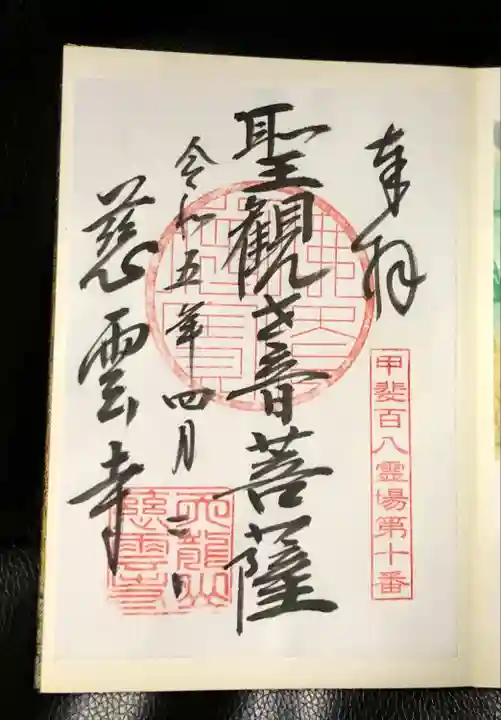 奉拝
甲斐百八霊場第十番
聖観世音菩薩
令和五年四月二日
慈雲寺
天龍山
慈雲寺